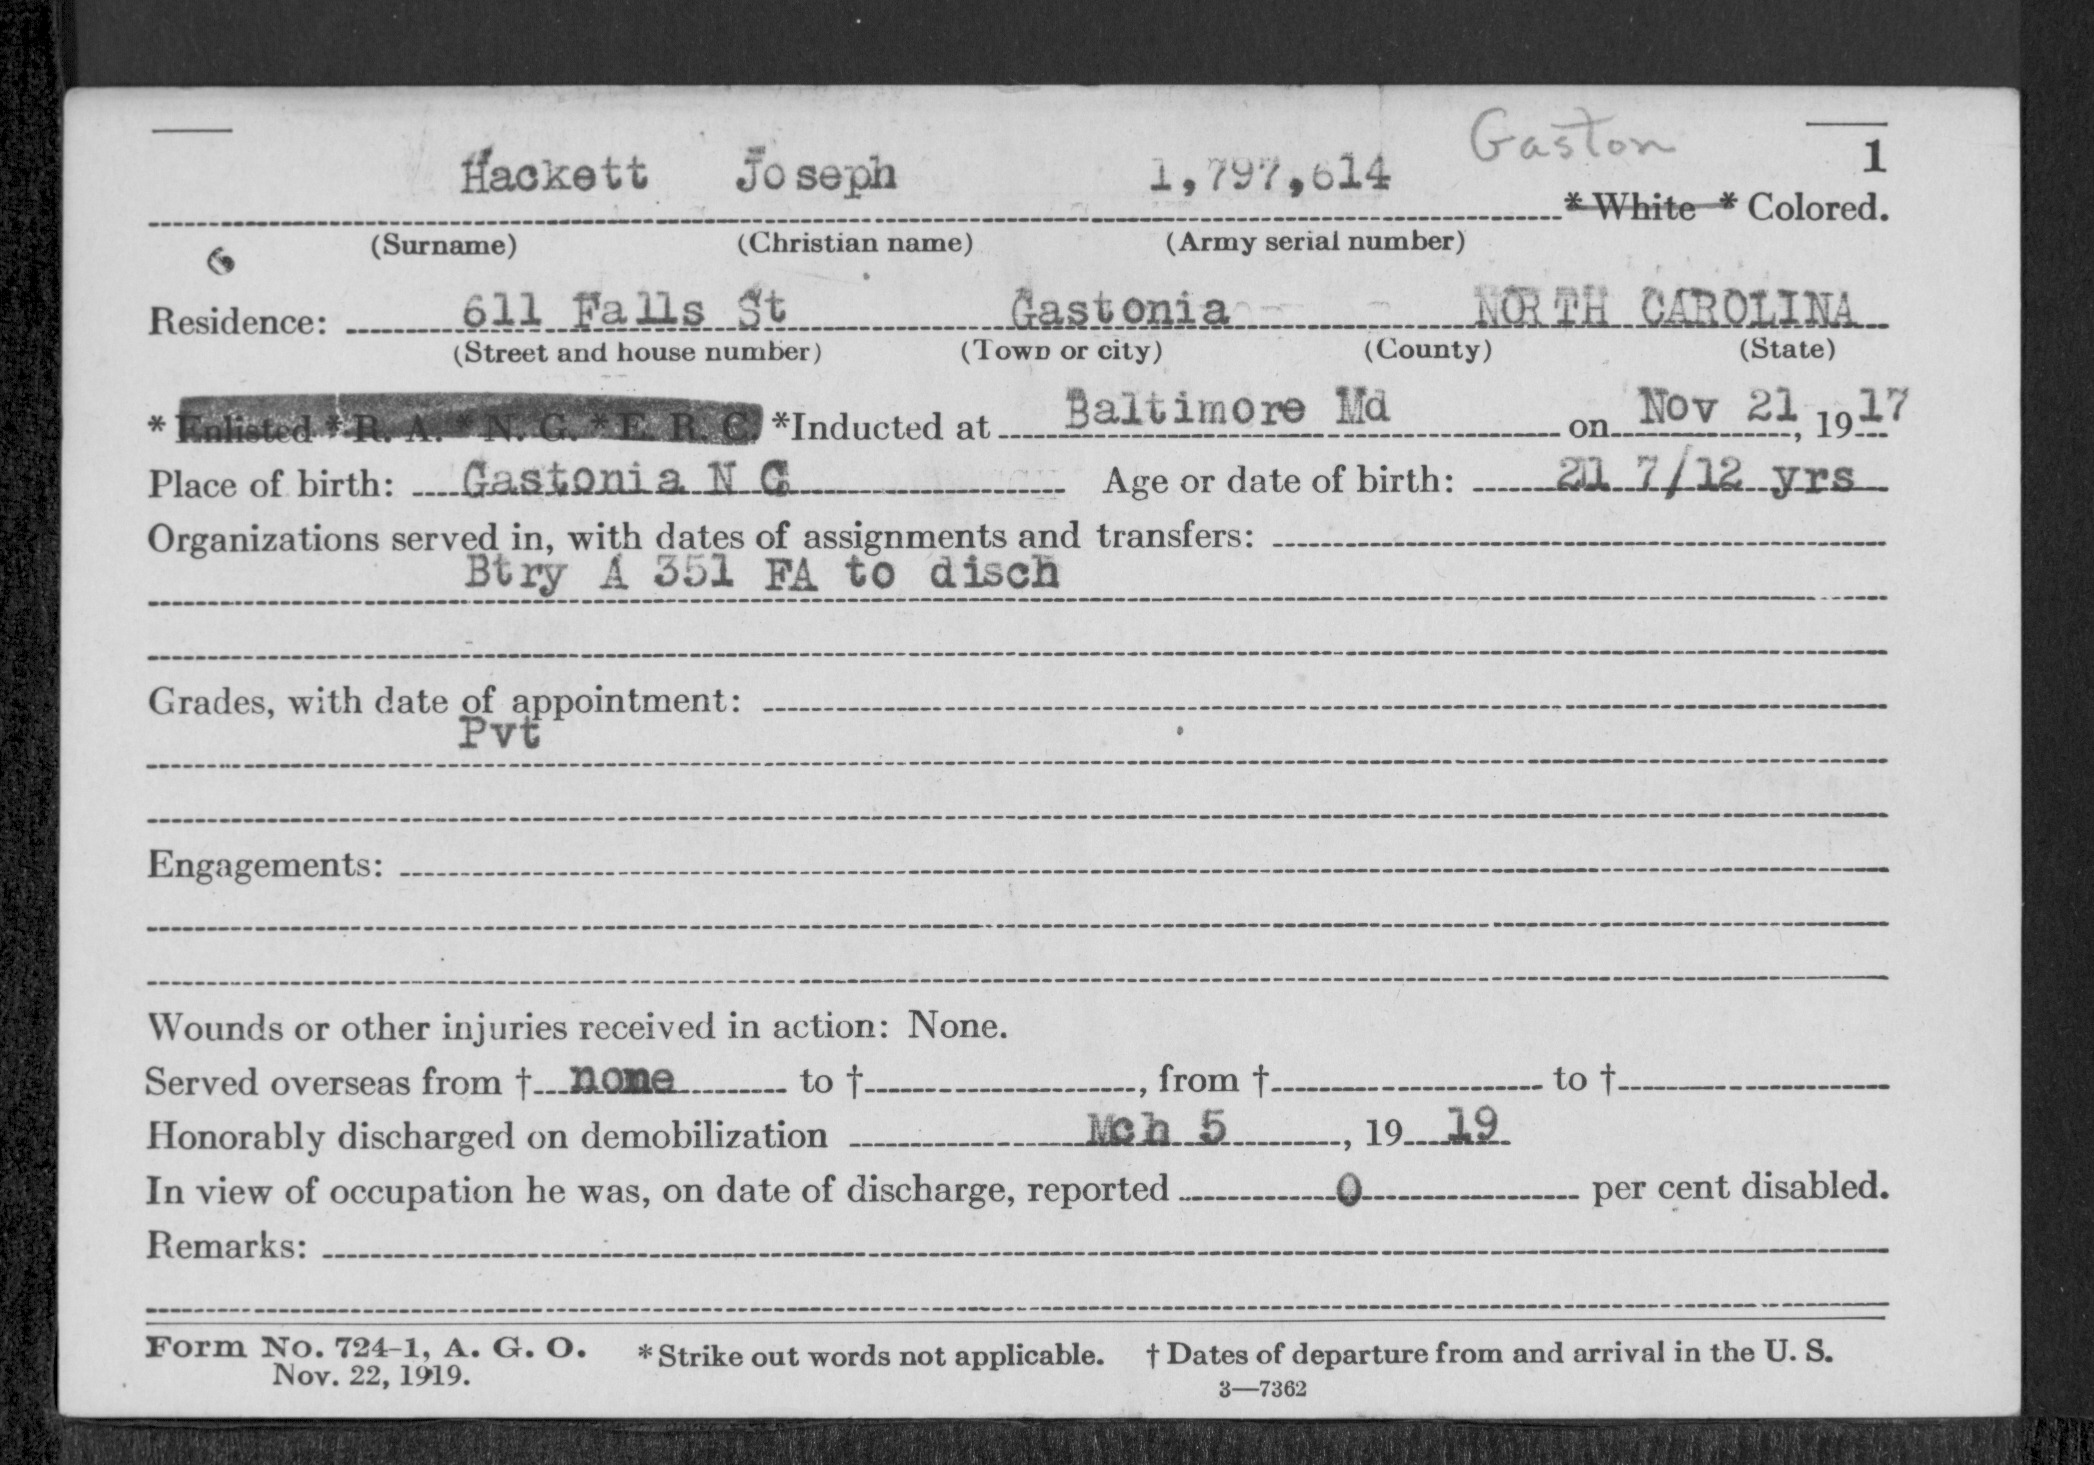 Gaston
1
Hackett Joseph 1,797,614 * White * Colored.
(Surname) (Christian name) (Army serial number)
Residence: 611 Falls St Gastonia NORTH CAROLINA
(Street and house number) (Town or city) (County) (State)
* Enlisted * R. A. * N. G. * E. R. C. *Inducted at Baltimore Md on Nov 21, 1917
Place of birth: Gastonia N C Age or date of birth: 21 7/12 yrs
Organizations served in, with dates of assignments and transfers:
Btry A 351 FA to disch
Grades, with date of appointment:
Pvt
Engagements:
Wounds or other injuries received in action: None.
Served overseas from † none to †, from † to †
Honorably discharged on demobilization Mch 5, 19 19
In view of occupation he was, on date of discharge, reported 0 per cent disabled.
Remarks:
Form No. 724-1, A. G. O. *Strike out words not applicable. † Dates of departure from and arrival in the U. S.
Nov. 22, 1919. 3—7362